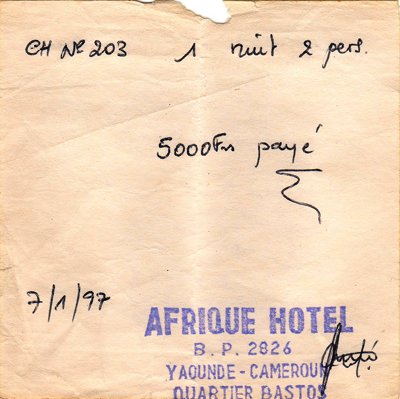 CH Nº 203 1 nuit 2 pers.
5000 Frs payé
7/1/97
AFRIQUE HOTEL
B.P. 2826
YAOUNDE-CAMEROUN
QUARTIER BASTOS